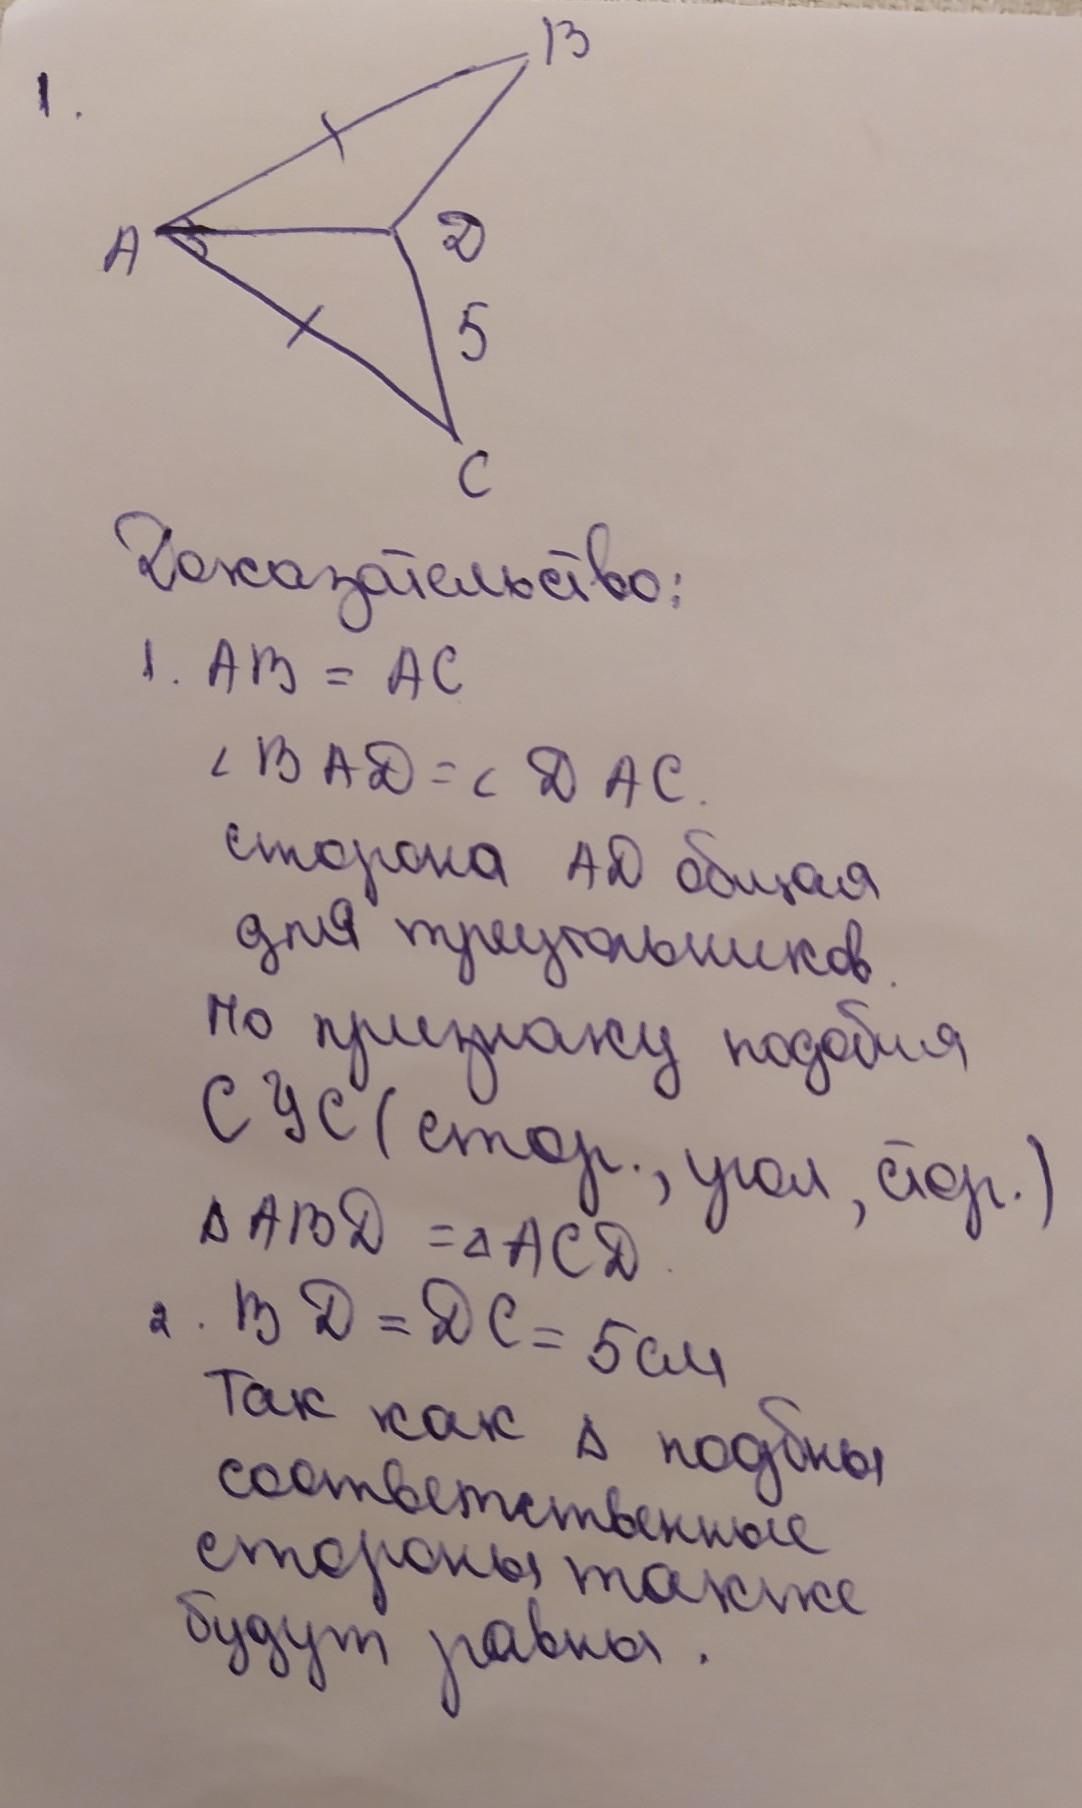 1.
B
A
D
5
C
Доказательство:
1. AB = AC
∠BAD = ∠DAC.
сторона AD общая
для треугольников.
По признаку подобия
СУС (стор., угол, стор.)
ΔABD = ΔACD.
2. BD = DC = 5см
Так как Δ подбны
соответственные
стороны также
будут равны.